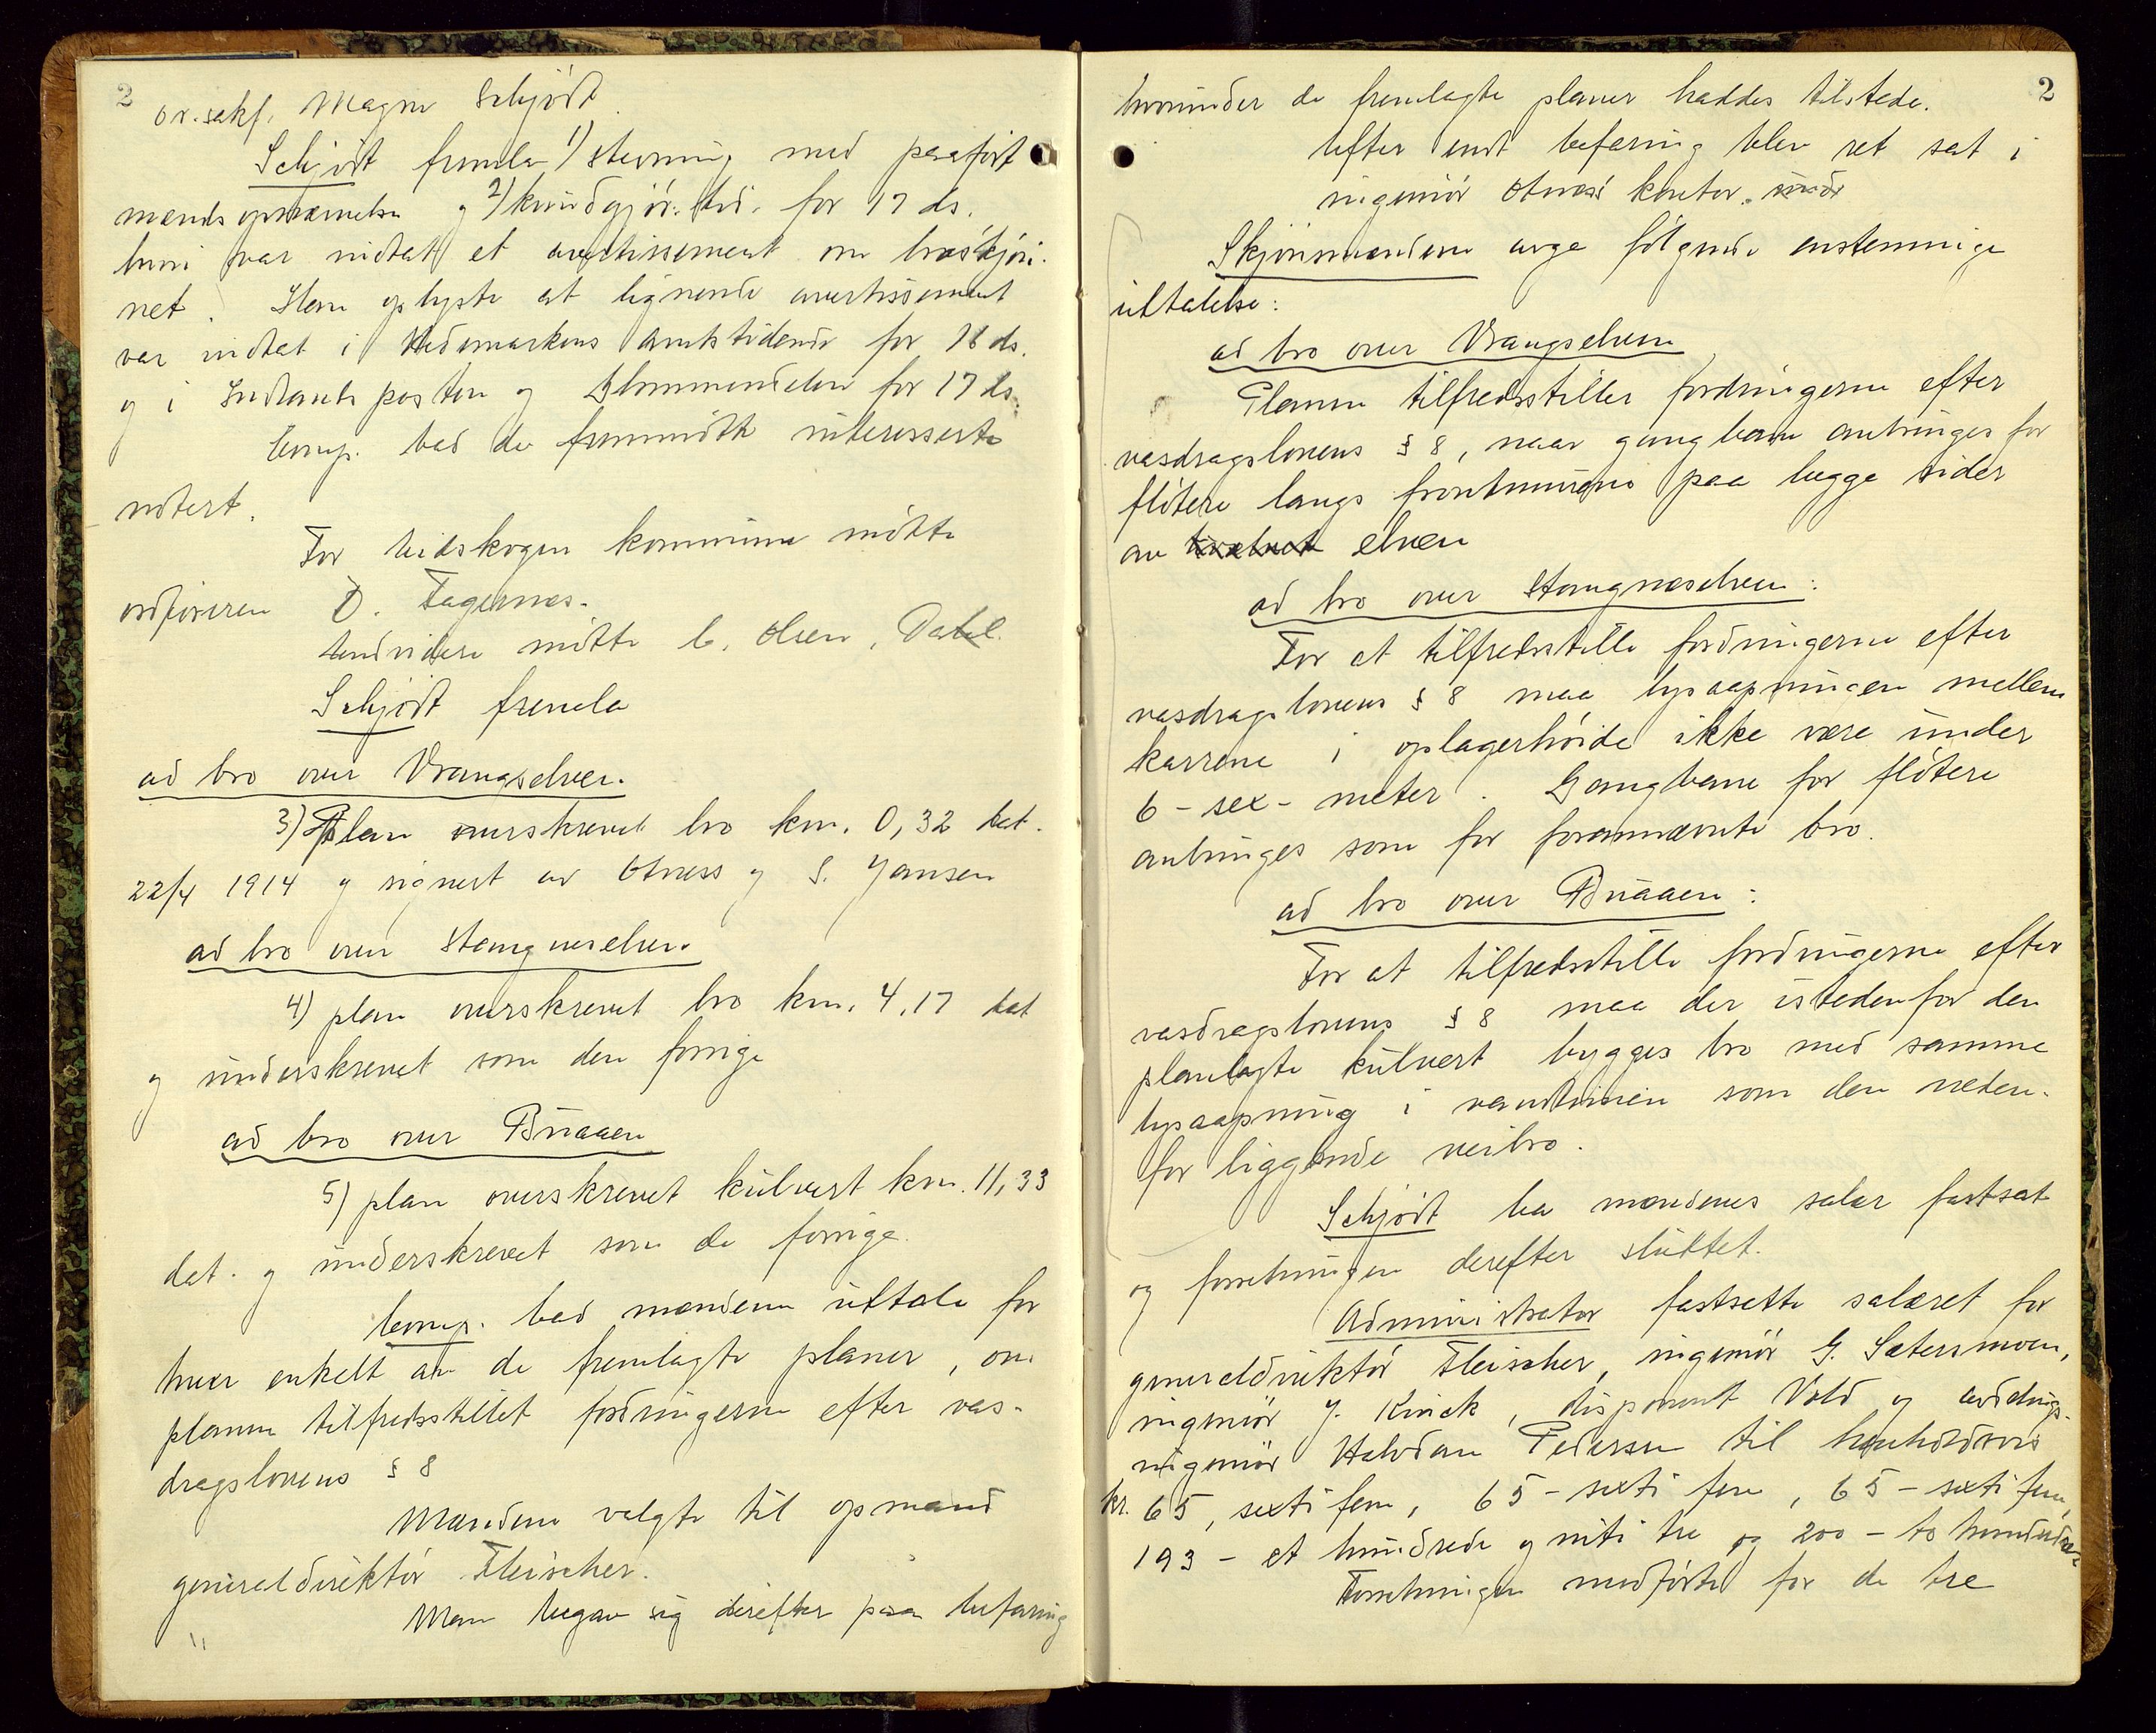 2
or. sakf. Magne Schjödt.
Schjödt fremla 1) stevning med paaført
mændsopnævnelse og 2) kundgjör. tid. for 17 ds.
hvori var indtat et avertissement om broskjön-
net. Han oplyste at lignende avertissement
var indtat i Hedemarkens Amtstidende for 16 ds.
og i Indlandsposten og Glommendalen for 17 ds.
Comp. bad de fremmötte interesserte
notert.
For Eidskogen kommune mötte
ordföreren O. Fagernæs.
Endvidere mötte C. Olsen, Dahl.
Schjödt fremla
ad bro over Vrangselven.
3) Plan overskrevet bro km. 0,32 dat.
22/4 1914 og signert av Otness og S. Jansen
ad bro over Stangneselven.
4) plan overskrevet bro km. 4,17 dat
og underskrevet som den forrige
ad bro over Buaaen
5) plan overskrevet kulvert km. 11,33
dat. og underskrevet som de forrige.
Comp. bad mændene uttale for
hver enkelt av de fremlagte planer, om
planene tilfredsstillet fordringerne efter vas-
dragslovens § 8
Mændene valgte til opmand
generaldirektör Fleischer.
Man begav sig derefter paa befaring
2
hvorunder de fremlagte planer haddes tilstede.
Efter endt befaring blev ret sat i
ingeniör Otness' kontor.
Skjönsmændene avga följende enstemmige
uttalelse:
ad bro over Vrangselven
Planen tilfredsstiller fordringerne efter
vasdragslovens § 8, naar gangbane anbringes for
flötere langs frontmurene paa begge sider
av elven
ad bro over Stangneselven:
For at tilfredsstille fordringerne efter
vasdragslovens § 8 maa lysaapningen mellem
karrene i oplagerhöide ikke være under
6 - sex - meter. Gangbane for flötere
anbringes som for forannævnte bro.
ad bro over Buaaen:
For at tilfredsstille fordringerne efter
vasdragslovens § 8 maa der istedenfor den
planlagte kulvert bygges bro med samme
lysaapning i vandlinien som den neden-
for liggende veibro.
Schjödt ba mændenes salær fastsat
og forretningen derefter sluttet.
Administrator fastsatte salæret for
generaldirektör Fleischer, ingeniör G. Sætersmoen,
ingeniör J. Kinck, disponent Vold og avdelings-
ingeniör Halvdan Pedersen til henholdsvis
kr. 65, sexti fem, 65 - sexti fem, 65 - sexti fem,
193 - et hundrede og niti tre og 200 - to hundrede
Forretningen medförte for de tre